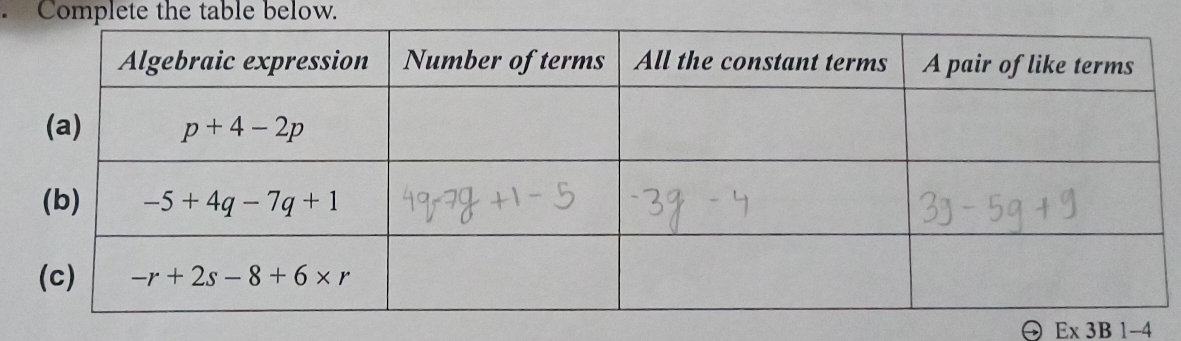 . Complete the table below.
Algebraic expression Number of terms All the constant terms A pair of like terms
(a) p + 4 – 2p
(b) –5 + 4q – 7q + 1 4q-7g +1-5 -3g -4 3g - 5g + 9
(c) –r + 2s – 8 + 6 × r
Ex 3B 1–4